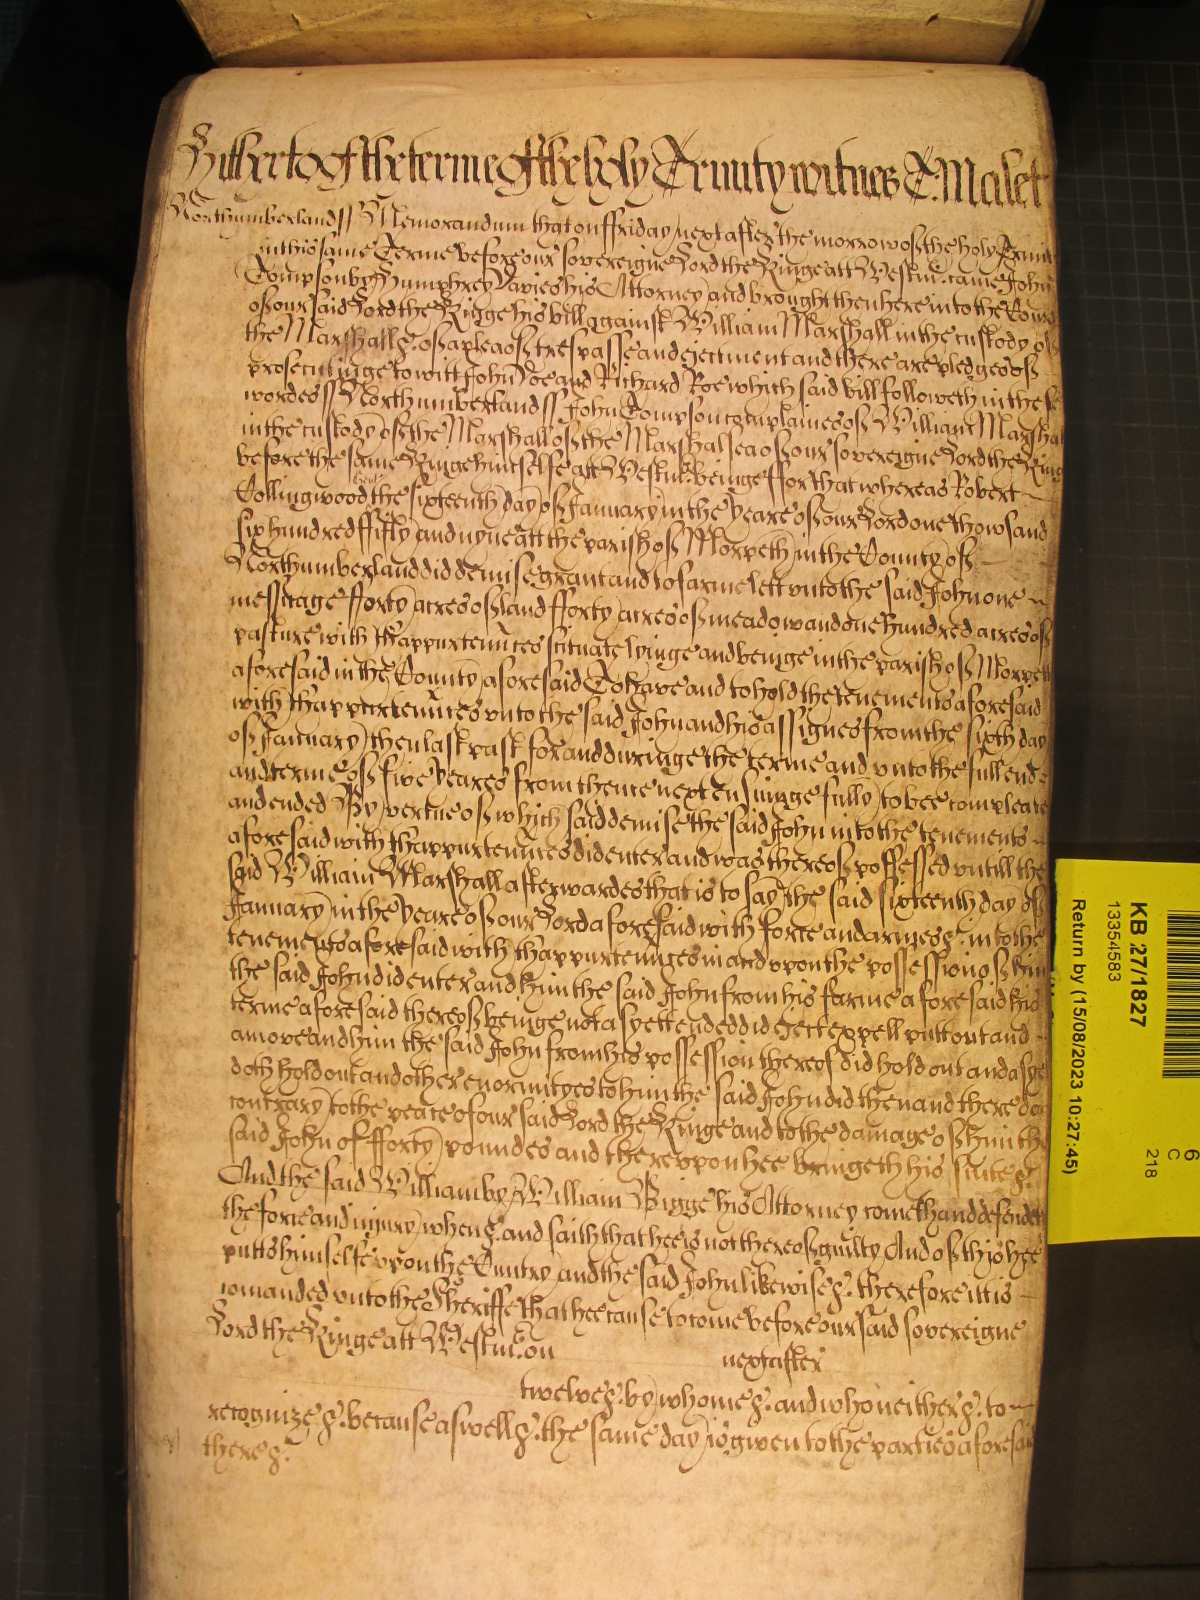 Hitherto of the terme of the holy Trinity witnes T. Malet
Northumberland ss Memorandum that on ffriday next after the morrow of the holy Trinity
in this same Terme before our sovereigne Lord the Kinge att Westm̃. came John
Tompson by Humphrey Davies his Attorney and brought then here into the Court
of our said Lord the Kinge his bill against William Marshall in the custody of
the Marshall &c. of a plea of trespasse and ejectment and there are pledges of
prosecutinge to witt John Doe and Richard Roe which said bill followeth in these
wordes ss Northumberland ss John Tompson complaines of William Marshall
in the custody of the Marshall of the Marshalsea of our sovereigne Lord the Kinge
before the same Kinge himselfe att Westm̃. beinge ffor that whereas Robert
Collingwood the sixteenth day of January in the yeare of our Lord one thowsand
six hundred ffifty and nyne att the parish of Morpeth in the County of
Northumberland did demise grant and to farme lett unto the said John one
messuage fforty acres of land fforty acres of meadow and one hundred acres of
pasture with thappurtenñces scituate lyinge and beinge in the parish of Morpeth
aforesaid in the County aforesaid To have and to hold the tenements aforesaid
with thappurtenñces unto the said John and his assignes from the sixth day
of January then last past for and duringe the terme and unto the full ende
and terme of five yeares from thence next ensuinge fully to bee compleate
and ended By vertue of which said demise the said John into the tenements
aforesaid with thappurtenñces did enter and was thereof possessed untill the
said William Marshall afterwardes that is to say the said sixteenth day of
January in the yeare of our Lord aforesaid with force and armes &c. into the
tenements aforesaid with thappurtenñces in and upon the possession of him
the said John did enter and him the said John from his farme aforesaid his
terme aforesaid thereof beinge not as yett ended did eject expell putt out and
amove and him the said John from his possession thereof did hold out and as yet
doth hold out and other enormityes to him the said John did then and there do
contrary to the peace of our said Lord the Kinge and to the damage of him the
said John of fforty poundes and thereupon hee bringeth his suite &c.
And the said William by William Bigge his Attorney cometh and defendeth
the force and injury when &c. and saith that hee is not thereof guilty And of this hee
putts himselfe upon the Cuntry and the said John likewise &c. therefore it is
comanded unto the Sheriffe that hee cause to come before our said sovereigne
Lord the Kinge att Westm̃. on next after
twelve &c. by whome &c. and who neither &c. to
recognize &c. because aswell &c. the same day is given to the parties aforesaid
there &c.
KB 27/1827
13354583
Return by (15/08/2023 10:27:45)
6
C
218